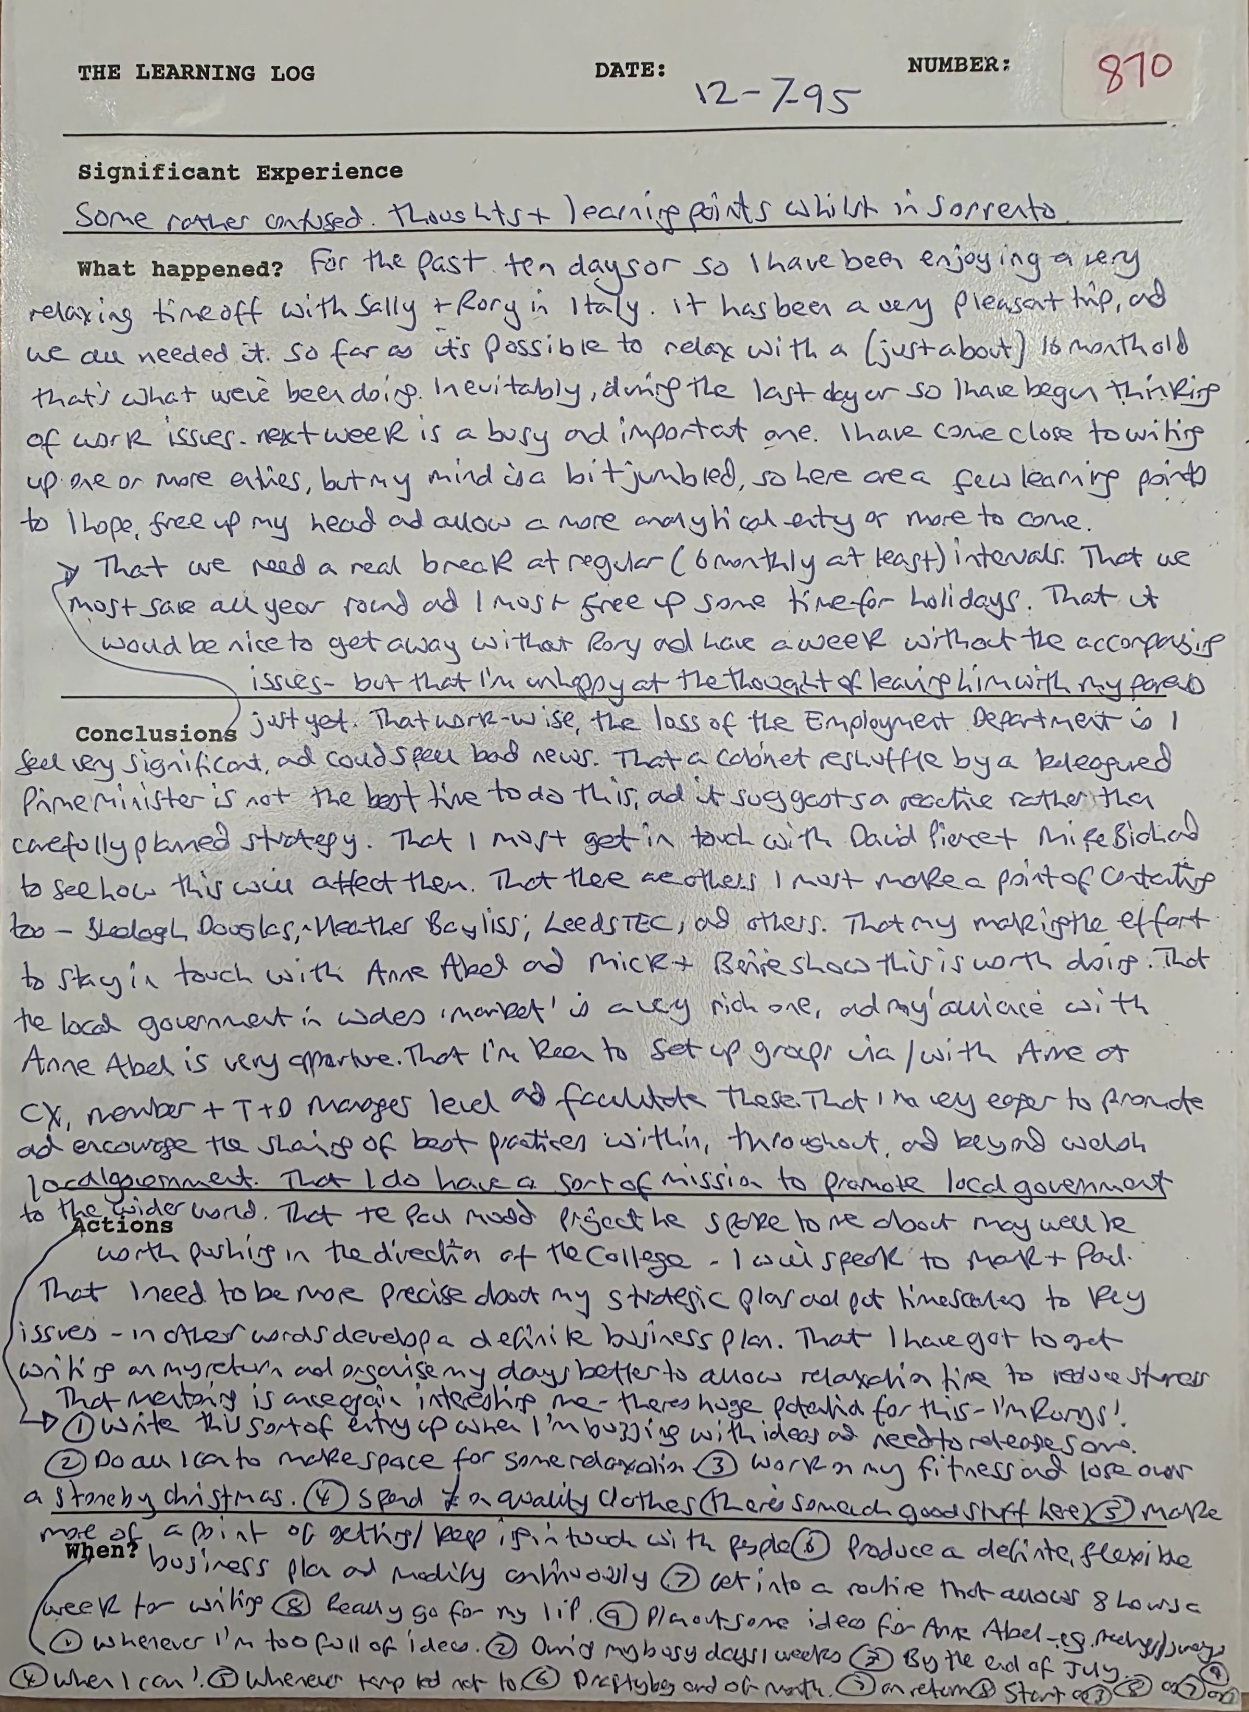 THE LEARNING LOG DATE: 12-7-95 NUMBER: 870
Significant Experience
Some rather confused. thoughts + learning points whilst in Sorrento.
What happened? For the past ten days or so I have been enjoying a very
relaxing time off with Sally + Rory in Italy. It has been a very pleasant trip, ad
we all needed it. So far as it's possible to relax with a (just about) 16 month old
that's what we've been doing. Inevitably, during the last day or so I have begun thinking
of work issues - next week is a busy ad important one. I have come close to writing
up one or more entries, but my mind is a bit jumbled, so here are a few learning points
to I hope, free up my head ad allow a more analytical entry or more to come.
That we need a real break at regular (6 monthly at least) intervals. That we
must save all year round ad I must free up some time for holidays. That it
would be nice to get away without Rory ad have a week without the accompanying
issues - but that I'm unhappy at the thought of leaving him with my parents
Conclusions just yet. That work-wise, the loss of the Employment Department is I
feel very significant, ad could spell bad news. That a cabinet reshuffle by a beleagured
Prime Minister is not the best time to do this, ad it suggests a reactive rather than
carefully planned strategy. That I must get in touch with David Pierce + Mike Bichard
to see how this will affect them. That there are others I must make a point of contacting
too - Sheelagh Douglas, Heather Bayliss, Leeds TEC, ad others. That my making the effort
to stay in touch with Anne Abel ad Mick + show this is worth doing. That
the local government in Wales 'market' is a very rich one, ad my 'alliance' with
Anne Abel is very opportune. That I'm keen to set up groups via/with Anne at
CX, member + T+D Manager level ad facilitate these. That I'm very eager to promote
ad encourage the sharing of best practices within, throughout, ad beyond Welsh
local government. That I do have a sort of mission to promote local government
to the wider world. That the Paul project he spoke to me about may well be
Actions
worth pushing in the direction of the College - I will speak to Mark + Paul.
That I need to be more precise about my strategic plan ad put timescales to key
issues - in other words develop a definite business plan. That I have got to get
writing on my return ad organise my days better to allow relaxation time to reduce stress
That mentoring is once again interesting me - there's huge potential for this - I'm
① Write this sort of entry up when I'm buzzing with ideas ad need to release some.
② Do all I can to make space for some relaxation ③ Work on my fitness ad lose over
a stone by christmas. ④ Spend £ on quality clothes (there's so much good stuff here) ⑤ Make
more of a point of getting/keeping in touch with people ⑥ Produce a definite, flexible
When? business plan ad modify continuously ⑦ Get into a routine that allows 8 hours a
week for writing ⑧ Really go for my lip. ⑨ Plan out some ideas for Anne Abel - eg. meetings/surveys
① Whenever I'm too full of ideas. ② During my busy days/weeks ③ By the end of July. ⑨
④ When I can! ⑤ Whenever tempted not to ⑥ Draft by end of month. ⑦ on return ⑧ Start